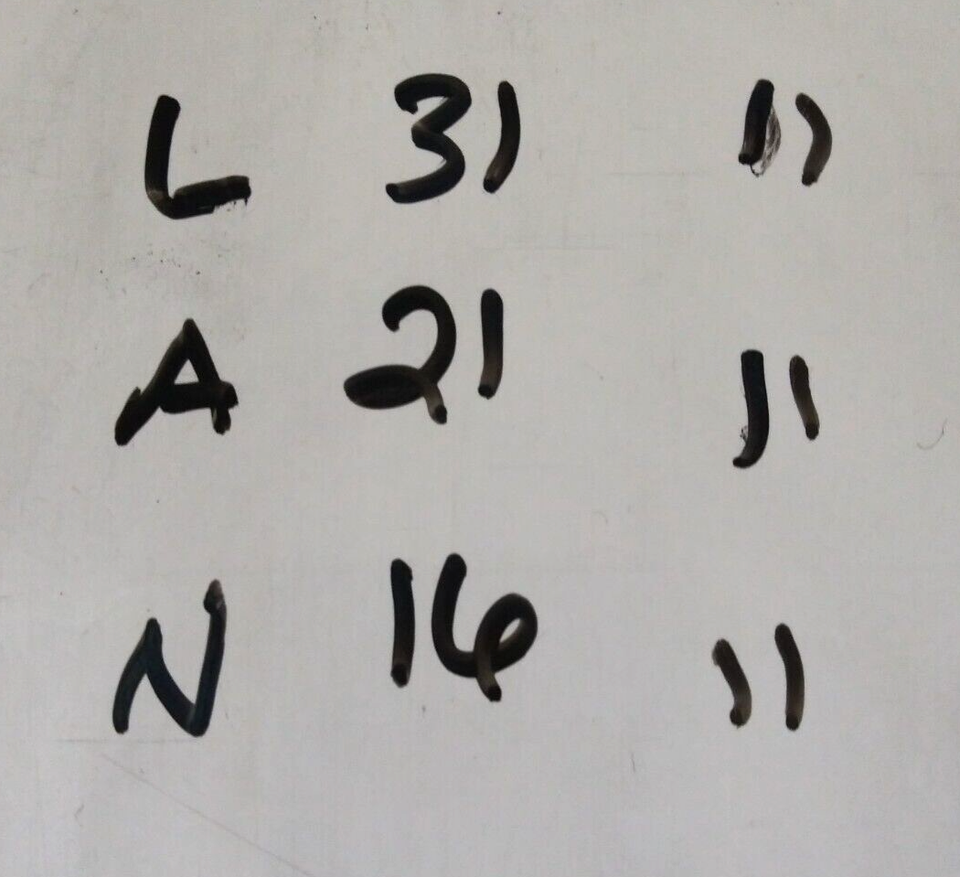 L 31 11
A 21 11
N 16 11